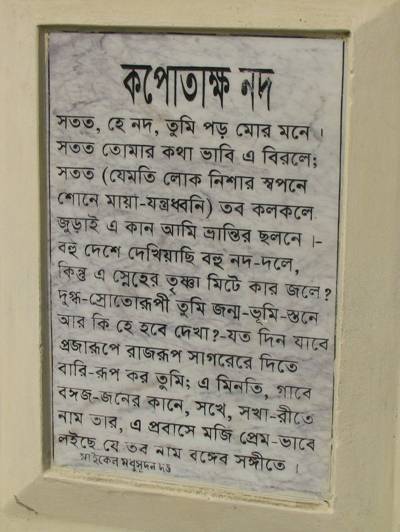 কপোতাক্ষ নদ
সতত, হে নদ, তুমি পড় মোর মনে ।
সতত তোমার কথা ভাবি এ বিরলে;
সতত (যেমতি লোক নিশার স্বপনে
শোনে মায়া-যন্ত্রধ্বনি) তব কলকলে
জুড়াই এ কান আমি ভ্রান্তির ছলনে ।-
বহু দেশে দেখিয়াছি বহু নদ-দলে,
কিন্তু এ স্নেহের তৃষ্ণা মিটে কার জলে?
দুগ্ধ-স্রোতোরূপী তুমি জন্ম-ভূমি-স্তনে
আর কি হে হবে দেখা?-যত দিন যাবে
প্রজারূপে রাজরূপ সাগরেরে দিতে
বারি-রূপ কর তুমি; এ মিনতি, গাবে
বঙ্গজ-জনের কানে, সখে, সখা-রীতে
নাম তার, এ প্রবাসে মজি প্রেম-ভাবে
লইছে যে তব নাম বঙ্গের সঙ্গীতে ।
মাইকেল মধুসূদন দত্ত